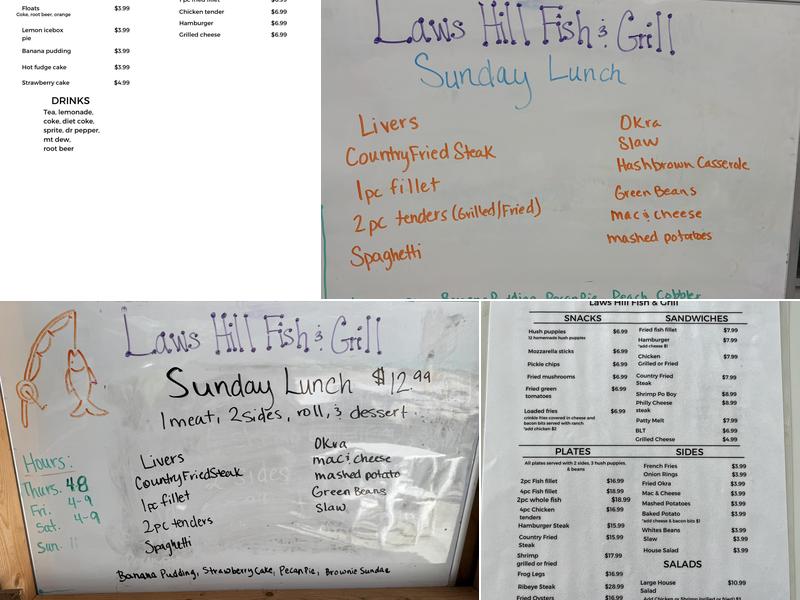 Floats $3.99
Coke, root beer, orange
Lemon icebox pie $3.99
Banana pudding $3.99
Hot fudge cake $3.99
Strawberry cake $4.99
DRINKS
Tea, lemonade,
coke, diet coke,
sprite, dr pepper,
mt dew,
root beer
Chicken tender $6.99
Hamburger $6.99
Grilled cheese $6.99
Laws Hill Fish & Grill
Sunday Lunch
Livers
Country Fried Steak
1pc fillet
2 pc tenders (Grilled/Fried)
Spaghetti
Okra
Slaw
Hashbrown Casserole
Green Beans
mac & cheese
mashed potatoes
Banana Pudding, Pecan Pie, Peach Cobbler
Laws Hill Fish & Grill
Sunday Lunch $12.99
1 meat, 2 sides, roll, & dessert
Hours:
Thurs. 4-8
Fri. 4-9
Sat. 4-9
Sun.
Livers
Country Fried Steak
1pc fillet
2pc tenders
Spaghetti
Okra
mac & cheese
mashed potato
Green Beans
Slaw
Banana Pudding, Strawberry Cake, Pecan Pie, Brownie Sundae
Laws Hill Fish & Grill
SNACKS
Hush puppies $6.99
12 homemade hush puppies
Mozzarella sticks $6.99
Pickle chips $6.99
Fried mushrooms $6.99
Fried green tomatoes $6.99
Loaded fries $6.99
crinkle fries covered in cheese and
bacon bits served with ranch
*add chicken $2
SANDWICHES
Fried fish fillet $7.99
Hamburger $7.99
*add cheese $1
Chicken $7.99
Grilled or Fried
Country Fried Steak $7.99
Shrimp Po Boy $8.99
Philly Cheese steak $8.99
Patty Melt $7.99
BLT $6.99
Grilled Cheese $4.99
PLATES
All plates served with 2 sides, 3 hush puppies,
& beans
2pc Fish fillet $16.99
4pc Fish fillet $18.99
2pc whole fish $18.99
4pc Chicken tenders $16.99
Hamburger Steak $15.99
Country Fried Steak $15.99
Shrimp grilled or fried $17.99
Frog Legs $16.99
Ribeye Steak $28.99
Fried Oysters $16.99
SIDES
French Fries $3.99
Onion Rings $3.99
Fried Okra $3.99
Mac & Cheese $3.99
Mashed Potatoes $3.99
Baked Potato $3.99
*add cheese & bacon bits $1
Whites Beans $3.99
Slaw $3.99
House Salad $3.99
SALADS
Large House Salad $10.99
Add Chicken or Shrimp (grilled or fried) $1